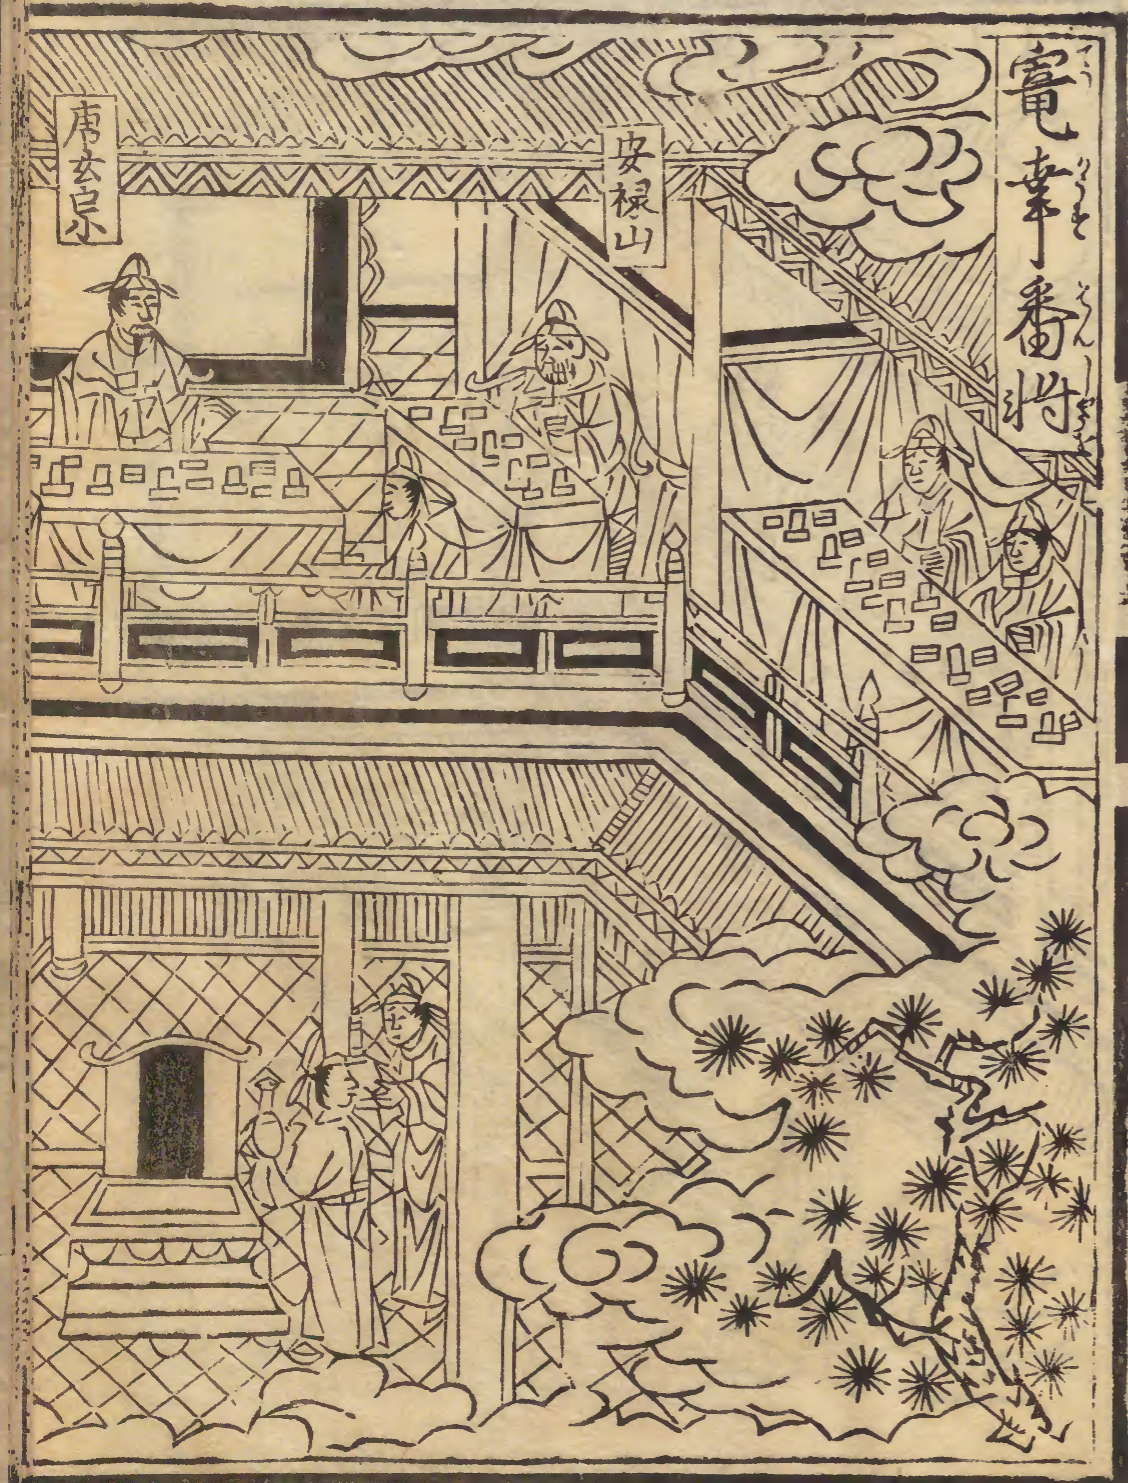 寵幸番将
安禄山
唐玄宗